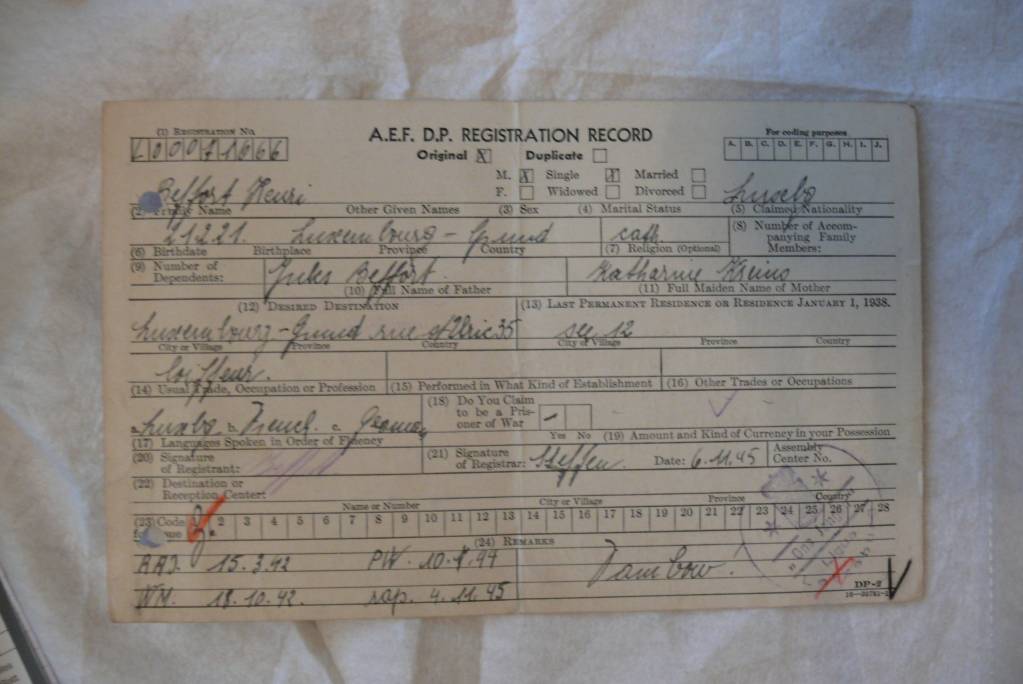 (1) REGISTRATION NO.
A.E.F. D.P. REGISTRATION RECORD
For coding purposes
L00071666
Original X Duplicate
A. B. C. D. E. F. G. H. I. J.
M. X Single X Married
F. Widowed Divorced
Beffort Henri Luxebg
(2) Family Name Other Given Names (3) Sex (4) Marital Status (5) Claimed Nationality
21.2.21. Luxembourg - Grund cath
(8) Number of Accompanying Family Members:
(6) Birthdate Birthplace Province Country (7) Religion (Optional)
(9) Number of Dependents:
Jules Beffort. Katharine
(10) Full Name of Father (11) Full Maiden Name of Mother
(12) DESIRED DESTINATION (13) LAST PERMANENT RESIDENCE OR RESIDENCE JANUARY 1, 1938.
Luxembourg - Grund rue st Ulric 35 see 12
City or Village Province Country City or Village Province Country
Coiffeur.
(14) Usual Trade, Occupation or Profession (15) Performed in What Kind of Establishment (16) Other Trades or Occupations
a. Luxbg b. French. c. German
(18) Do You Claim to be a Prisoner of War –
Yes No
(17) Languages Spoken in Order of Fluency (19) Amount and Kind of Currency in your Possession
(20) Signature of Registrant: (21) Signature of Registrar: Steffen Date: 6.11.45 Assembly Center No.
(22) Destination or Reception Center:
Name or Number City or Village Province Country
(23) Code 1 2 3 4 5 6 7 8 9 10 11 12 13 14 15 16 17 18 19 20 21 22 23 24 25 26 27 28
(24) REMARKS
RAD. 15.3.42 PW. Tambow.
WM. 18.10.42. rap. 4.11.45
DP-2